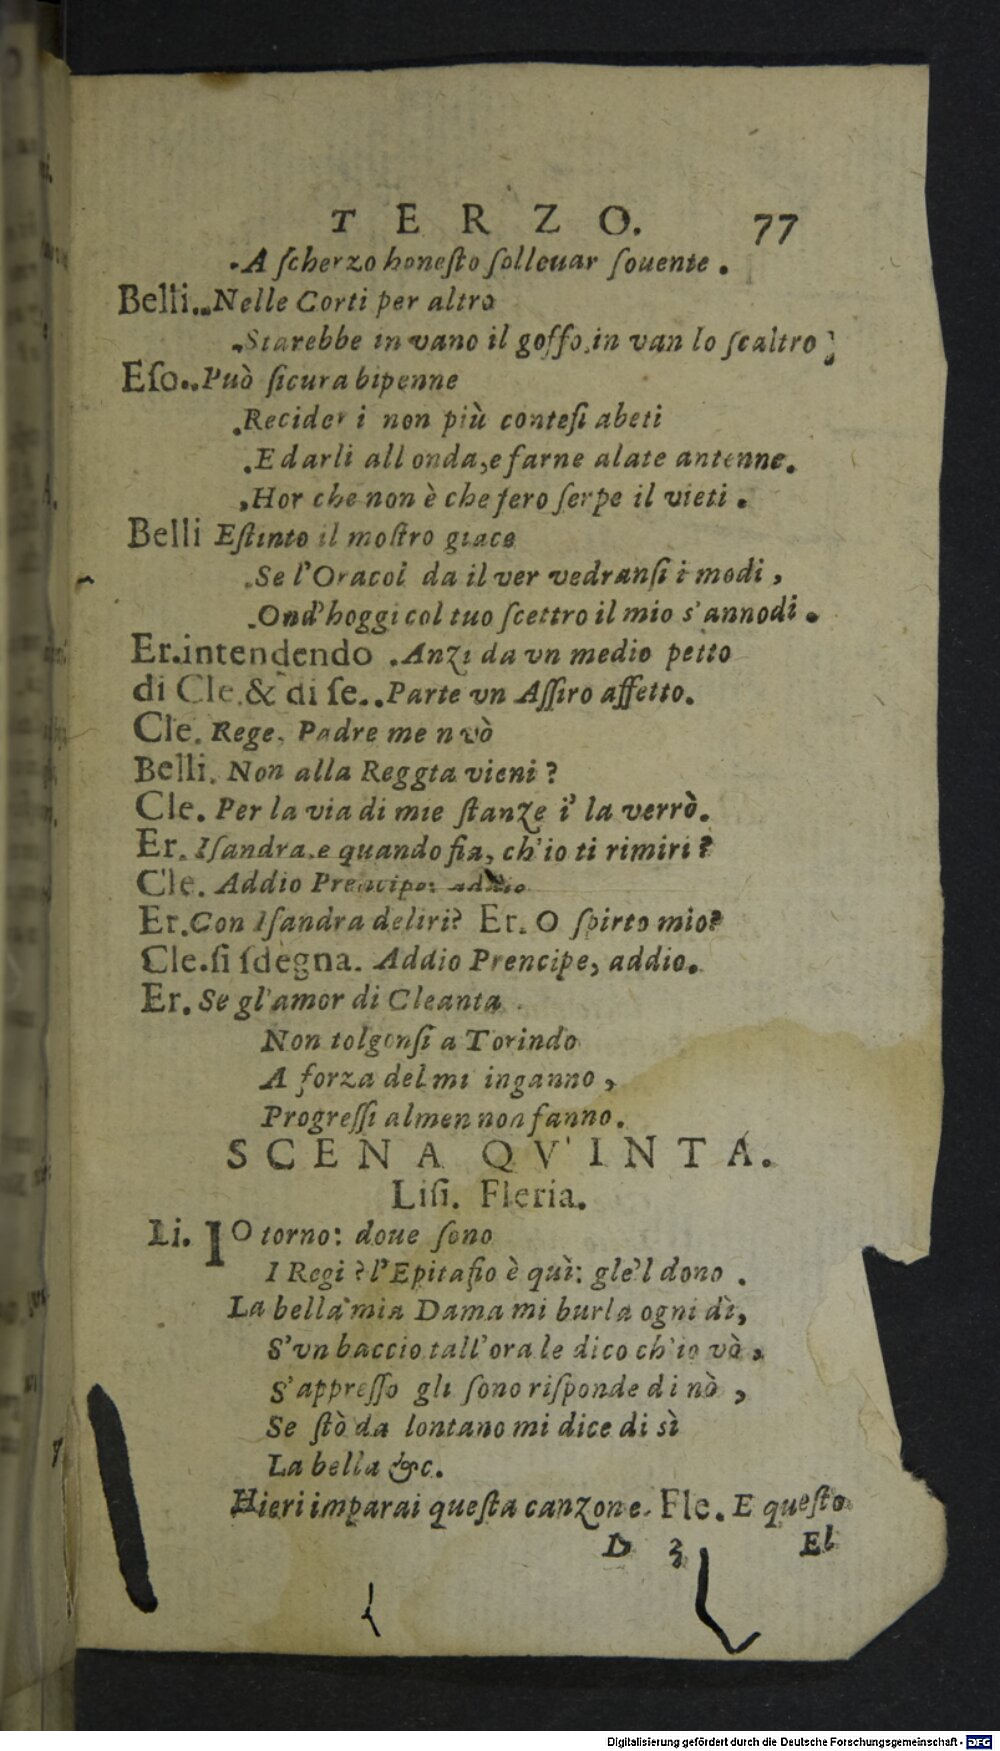 TERZO. 77
A ſcherzo honeſto ſolleuar ſouente.
Belli. Nelle Corti per altro
Starebbe in vano il goffo, in van lo ſcaltro;
Eſo. Può ſicura bipenne
Recider i non più conteſi abeti
E darli all onda, e farne alate antenne.
Hor che non è che fero ſerpe il vieti.
Belli Eſtinto il moſtro giace
Se l'Oracol da il ver vedranſi i modi,
Ond'hoggi col tuo ſcettro il mio s'annodi.
Er. intendendo . Anzi da vn medio petto
di Cle. & di ſe.. Parte vn Aſſiro affetto.
Cle. Rege, Padre me n vò
Belli. Non alla Reggta vieni?
Cle. Per la via di mie ſtanze i' la verrò.
Er. Iſandra, e quando fia, ch'io ti rimiri?
Cle. Addio Prencipe: addio
Er. Con Iſandra deliri? Er. O ſpirto mio?
Cle. ſi ſdegna. Addio Prencipe, addio.
Er. Se gl'amor di Cleanta
Non tolgonſi a Torindo
A forza del mi inganno,
Progreſſi almen non fanno.
SCENA QV'INTA.
Liſi. Fleria.
Li. IO torno: doue ſono
I Regi? l'Epitafio è quì: gle'l dono.
La bella mia Dama mi burla ogni dì,
S'vn baccio tall'ora le dico ch'io vò,
S'appreſſo gli ſono riſponde di nò,
Se ſtò da lontano mi dice di sì
La bella &c.
Hieri imparai queſta canzone. Fle. E queſto
D 3 El
Digitalisierung gefördert durch die Deutsche Forschungsgemeinschaft - DFG